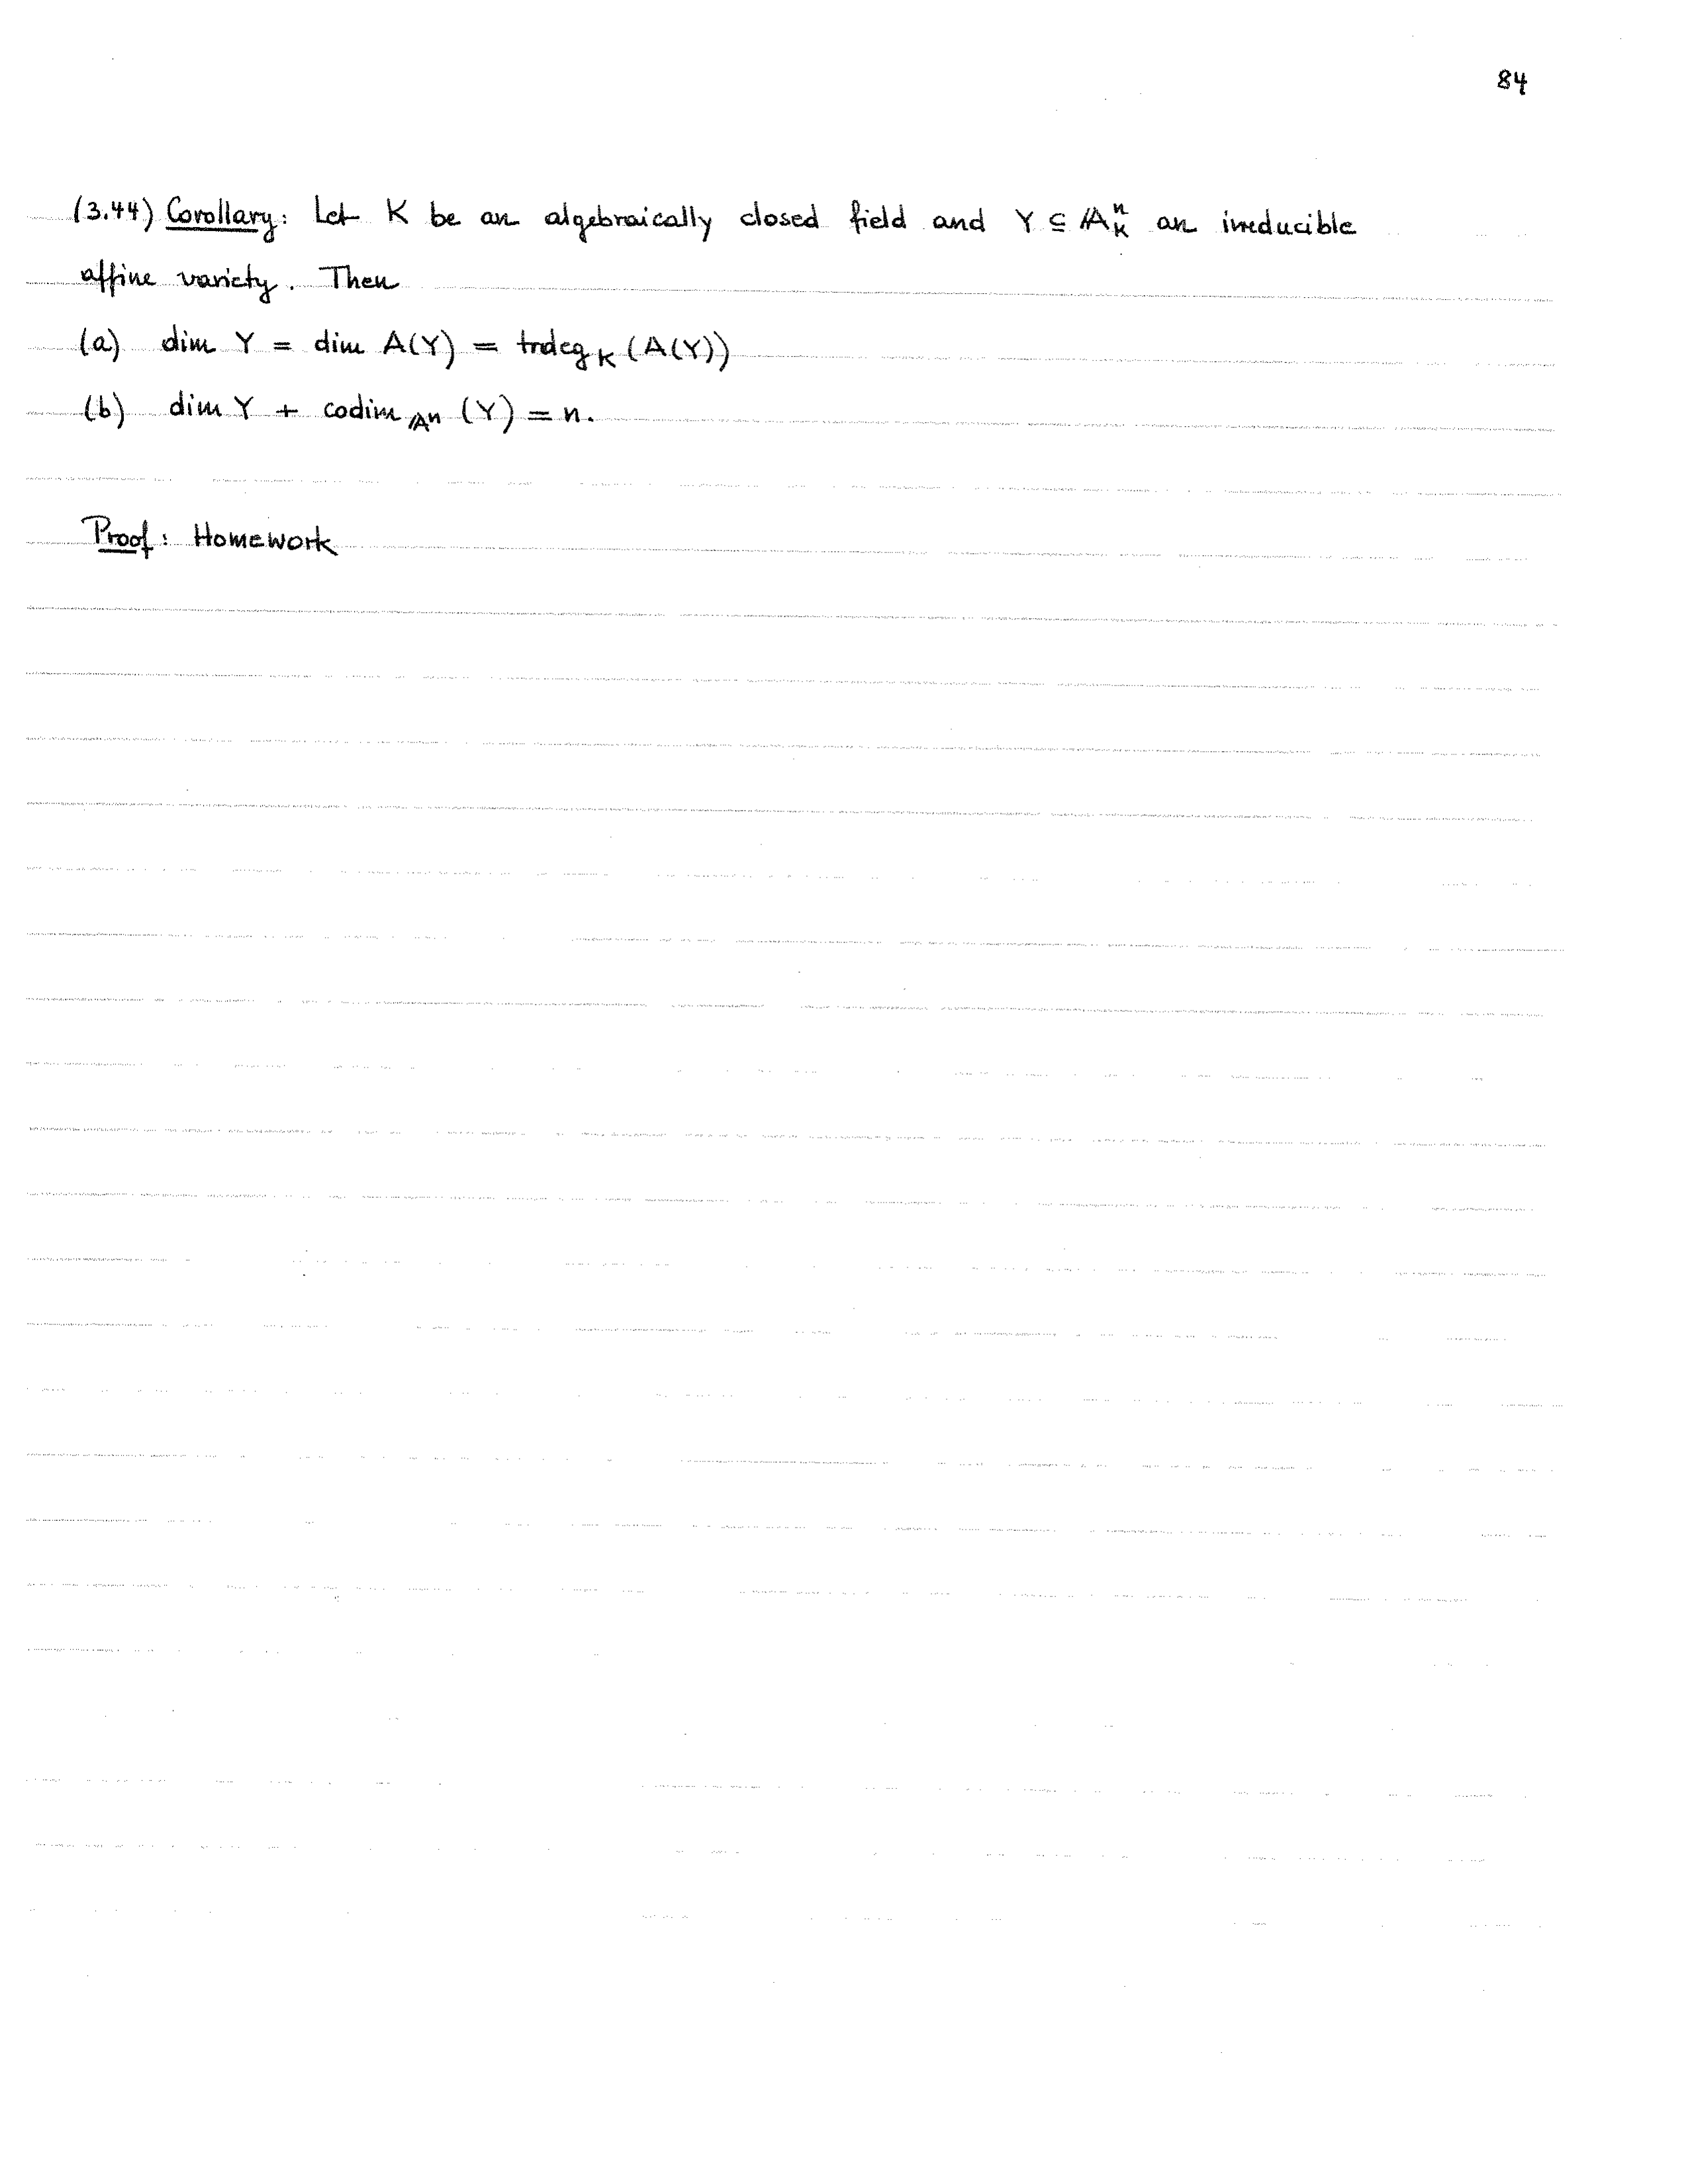 84
(3.44) Corollary: Let K be an algebraically closed field and Y ⊆ 𝔸ⁿ_K an irreducible
affine variety. Then
(a) dim Y = dim A(Y) = trdeg_K (A(Y))
(b) dim Y + codim_𝔸ⁿ (Y) = n.
Proof: Homework